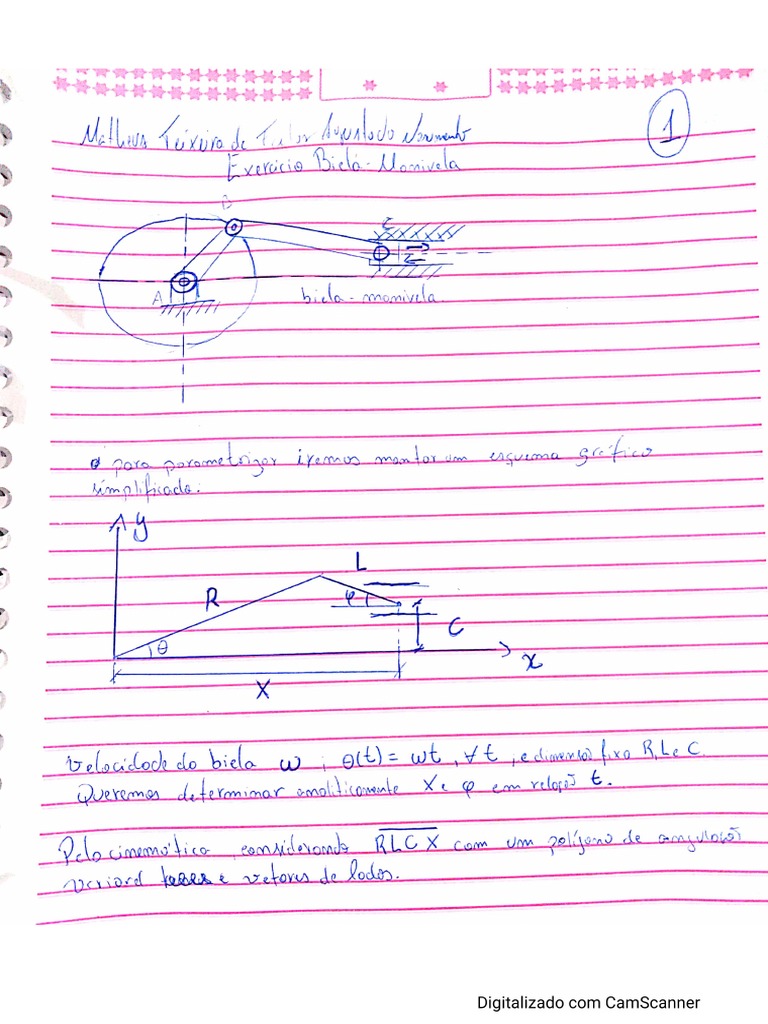 Matheus Teixeira de
1
Exercício Biela-Manivela
B
C
A
biela-manivela
para parametrizar iremos montar um esquema gráfico
simplificado:
y
L
R
φ
C
θ
x
X
Velocidade da biela ω, θ(t) = ωt, ∀t, e dimensão fixa R, L e C.
Queremos determinar analiticamente X e φ em relação t.
Pela cinemática, considerando RLCX com um polígono de angulação
e vetores de lados.
Digitalizado com CamScanner